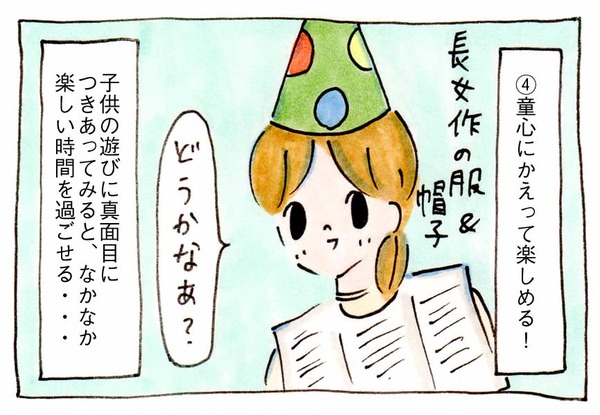 ④童心にかえって楽しめる！
長女作の服&
帽子
どうかなあ？
子供の遊びに真面目に
つきあってみると、なかなか
楽しい時間を過ごせる・・・